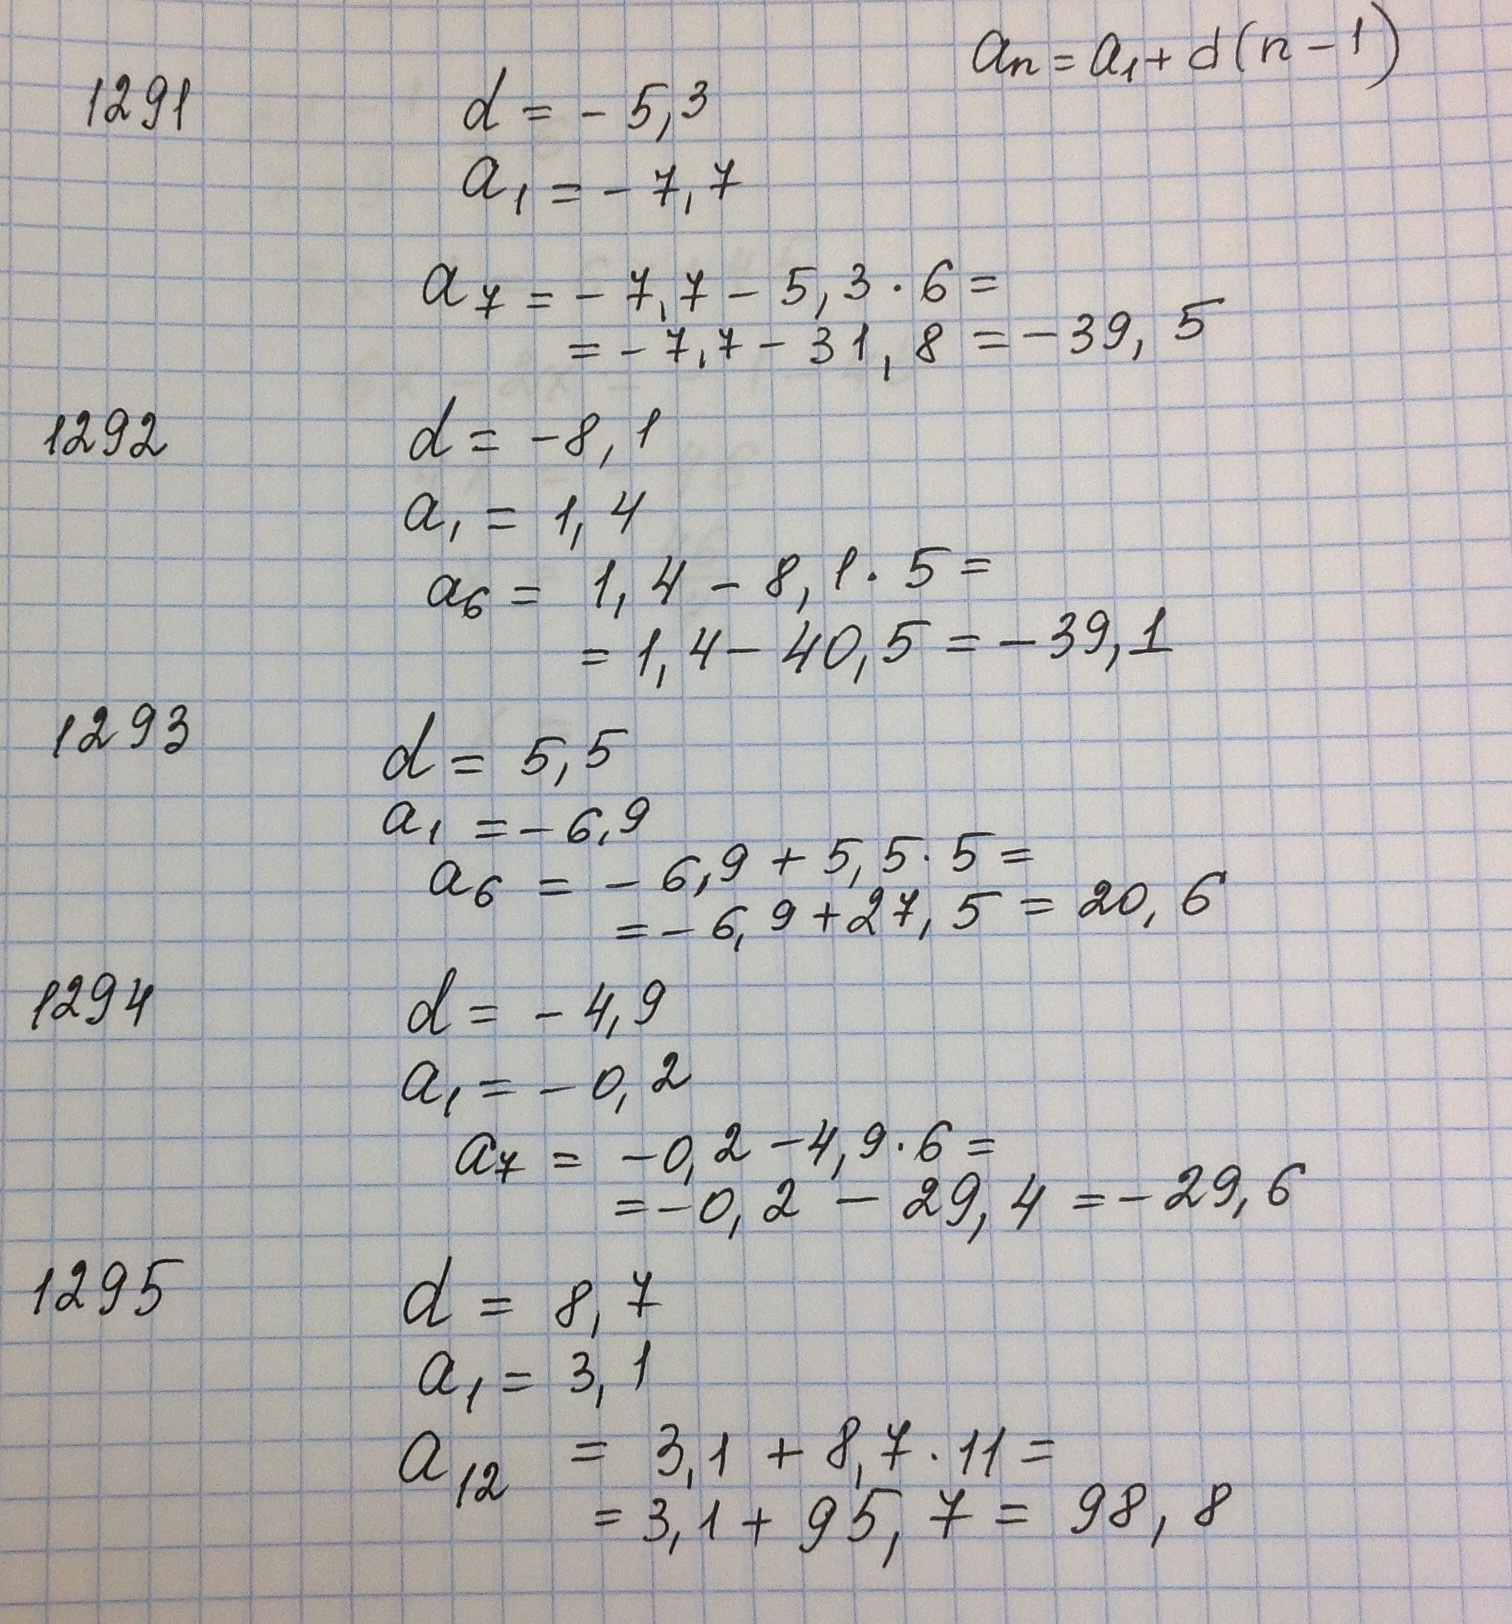 aₙ = a₁ + d(n - 1)
1291 d = - 5,3
a₁ = - 7,7
a₇ = - 7,7 - 5,3 · 6 =
= - 7,7 - 31,8 = - 39,5
1292 d = - 8,1
a₁ = 1,4
a₆ = 1,4 - 8,1 · 5 =
= 1,4 - 40,5 = - 39,1
1293 d = 5,5
a₁ = - 6,9
a₆ = - 6,9 + 5,5 · 5 =
= - 6,9 + 27,5 = 20,6
1294 d = - 4,9
a₁ = - 0,2
a₇ = - 0,2 - 4,9 · 6 =
= - 0,2 - 29,4 = - 29,6
1295 d = 8,7
a₁ = 3,1
a₁₂ = 3,1 + 8,7 · 11 =
= 3,1 + 95,7 = 98,8